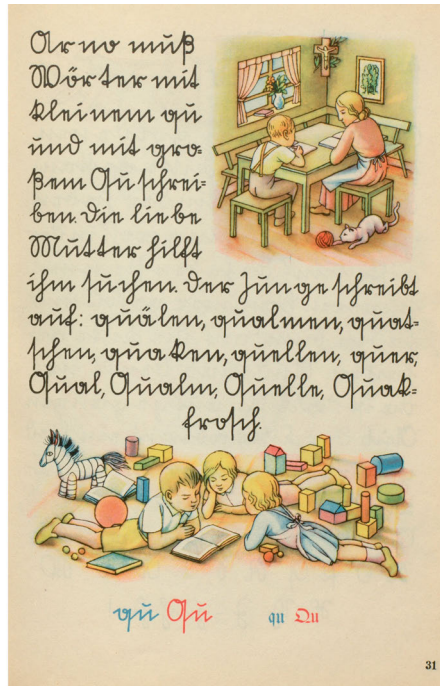 Arno muß
Wörter mit
kleinem qu
und mit gro-
ßem Qu schrei-
ben. Die liebe
Mutter hilft
ihm suchen. Der Junge schreibt
auf: quälen, qualmen, quat-
schen, quaken, quellen, quer,
Qual, Qualm, Quelle, Quak-
frosch.
qu Qu qu Qu
31